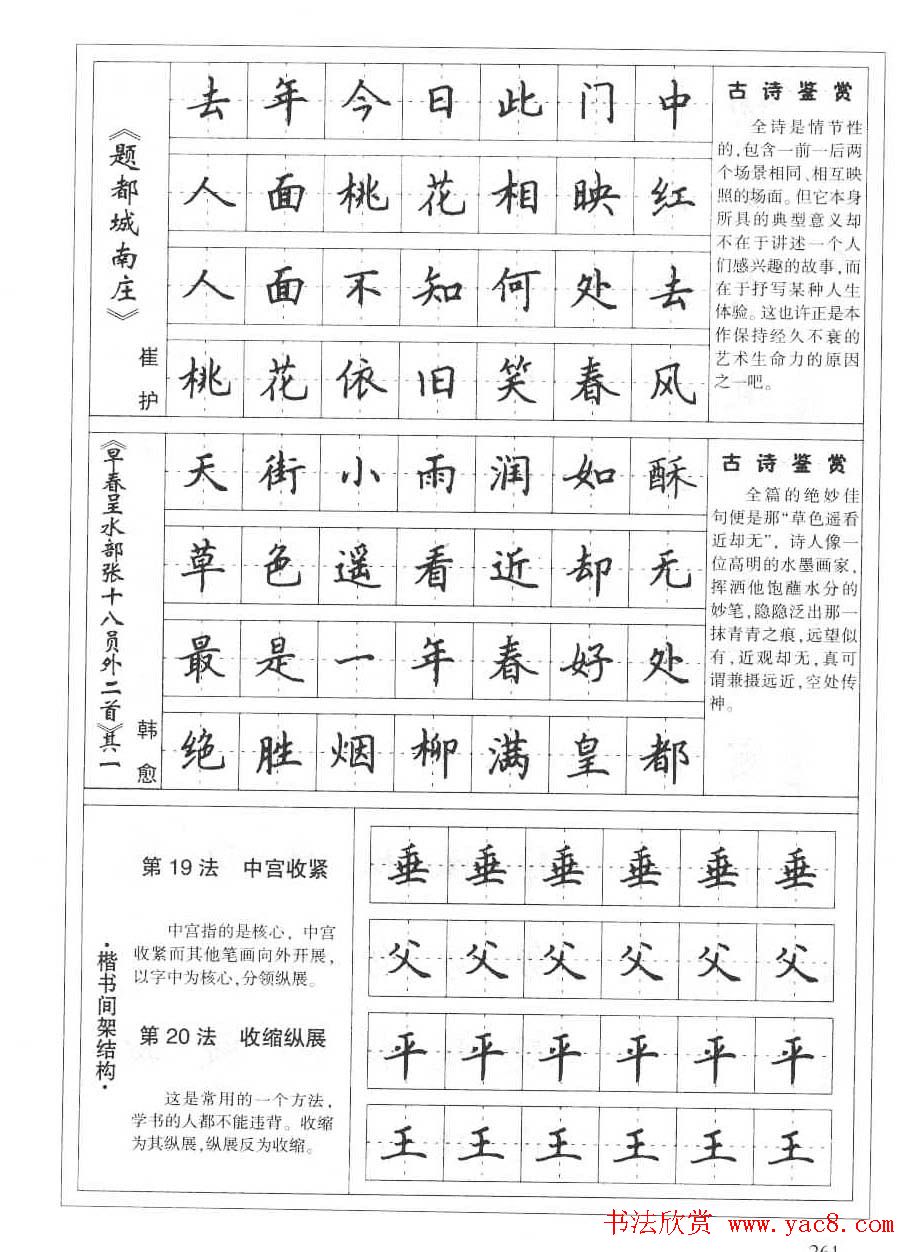 《题都城南庄》
崔护
去年今日此门中
人面桃花相映红
人面不知何处去
桃花依旧笑春风
古诗鉴赏
全诗是情节性
的,包含一前一后两
个场景相同、相互映
照的场面。但它本身
所具的典型意义却
不在于讲述一个人
们感兴趣的故事,而
在于抒写某种人生
体验。这也许正是本
作保持经久不衰的
艺术生命力的原因
之一吧。
《早春呈水部张十八员外二首》其一
韩愈
天街小雨润如酥
草色遥看近却无
最是一年春好处
绝胜烟柳满皇都
古诗鉴赏
全篇的绝妙佳
句便是那“草色遥看
近却无”，诗人像一
位高明的水墨画家,
挥洒他饱蘸水分的
妙笔,隐隐泛出那一
抹青青之痕,远望似
有,近观却无,真可
谓兼摄远近,空处传
神。
·楷书间架结构·
第19法 中宫收紧
中宫指的是核心，中宫
收紧而其他笔画向外开展,
以字中为核心,分领纵展。
第20法 收缩纵展
这是常用的一个方法,
学书的人都不能违背。收缩
为其纵展,纵展反为收缩。
垂垂垂垂垂垂
父父父父父父
平平平平平平
王王王王王王
书法欣赏 www.yac8.com
261